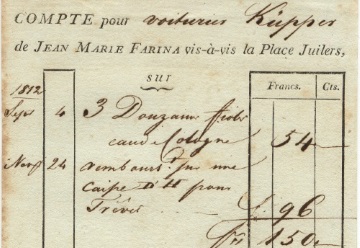 COMPTE pour voiturier Küpper
de JEAN MARIE FARINA vis-à-vis la Place Juliers,
sur
Francs. Cts.
1812
Sept 4 3 Douzaine
eau de Cologne 54
24 une
Caisse pour
Trèves 96
150